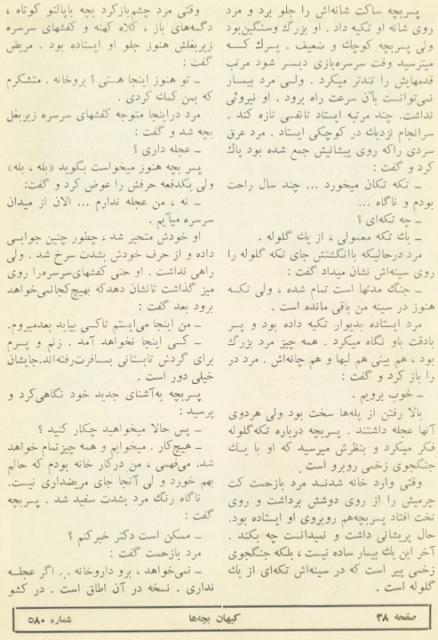 پسربچه ساکت شانه‌اش را جلو برد و مرد
روی شانه او تکیه داد . او بزرگ وسنگین‌بود
ولی پسربچه کوچك و ضعیف . پسرك کـــه
میترسید وقت سرسره‌بازی دیــر شود مرتب
قدمهایش را تندتر میکرد . ولی مرد بیمـار
نمی‌توانست بآن سرعت راه برود . او نیروئی
نداشت. چند مرتبه ایستاد تانفسی تازه کند .
سرانجام نزدیك در کوچکی ایستاد . مرد عرق
سردی راکه روی پیشانیش جمع شده بود پاك
کرد و گفت :
ــ تکه تکان میخورد ... چند سال راحت
بودم و ناگاه ...
ــ چه تکه‌ای ؟
ــ یك تکه معمولی ، از یك گلوله .
مرد درحالیکه باانگشتش جای تکه گلوله را
روی سینه‌اش نشان میداد گفت :
ــ جنگ مدتها است تمام شده ، ولی تکــه
هنوز در سینه من باقی مانده است .
مرد ایستاده بدیوار تکیه داده بود و پسر
بادقت باو نگاه میکرد . همه چیز مرد بزرگ
بود ، هم بینی هم لبها و هم چانه‌اش . مرد در
را باز کرد و گفت :
ــ خوب برویم .
بالا رفتن از پله‌ها سخت بود ولی هردوی
آنها عجله داشتند . پسربچه درباره تکه‌گلوله
فکر میکرد و بنظرش میرسید که او با یــك
جنگجوی زخمی روبرو است .
وقتی وارد خانه شدنــد مرد بازحمت کت
چرمیش را از روی دوشش برداشت و روی
تخت افتاد پسربچه‌هم روبروی او ایستاده بود.
حال پریشانی داشت و نمیدانست چه بکند .
آخر این یك بیمار ساده نیست ، بلکه جنگجوی
زخمی پیر است که در سینه‌اش تکه‌ای از یك
گلوله است .
وقتی مرد چشم‌بازکرد بچه باپالتو کوتاه ،
دگمه‌های باز ، کلاه کهنه و کفشهای سرسره
زیربغلش هنوز جلو او ایستاده بود . مریض
گفت :
ــ تو هنوز اینجا هستی ؟ بروخانه . متشکرم
که بمن کمك کردی .
مرد دراینجا متوجه کفشهای سرسره زیربغل
بچه شد و گفت :
ــ عجله داری ؟
پسر بچه هنوز میخواست بگوید «بله ، بله»
ولی یکدفعه حرفش را عوض کرد و گفت:
ــ نه ، من عجله ندارم ... الان از میدان
سرسره میآیم .
او خودش متحیر شد ، چطور چنین جوابــی
داده و از حرف خودش بشدت سرخ شد . ولی
راهی نداشت . او حتی کفشهای‌سرسره‌را روی
میز گذاشت تانشان دهدکه بهیچ‌کجانمی‌خواهد
برود بعد گفت :
ــ من اینجا می‌ایستم تاکسی بیاید بعدمیروم.
ــ کسی اینجا نخواهد آمد . زنم و پسرم
برای گردش تابستانی بمسافرت‌رفته‌اند.جایشان
خیلی دور است .
پسربچه به‌آشنای جدید خود نگاهی‌کرد و
پرسید :
ــ پس حالا میخواهید چکار کنید ؟
ــ هیچ‌کار . میخوابم و همه چیزتمام خواهد
شد. می‌فهمی ، من درکار خانه بودم که حالم
بهم خورد و لی آنجا جای مریضداری نیست.
ناگاه رنگ مرد بشدت سفید شد . پسربچه
گفت :
ــ ممکن است دکتر خبرکنم ؟
مرد بازحمت گفت :
ــ نمی‌خواهد ، برو داروخانه .. اگر عجلــه
نداری . نسخه در آن اطاق است . در کشو
صفحه ۳۸
کیهان بچه‌ها
شماره ۵۸۰